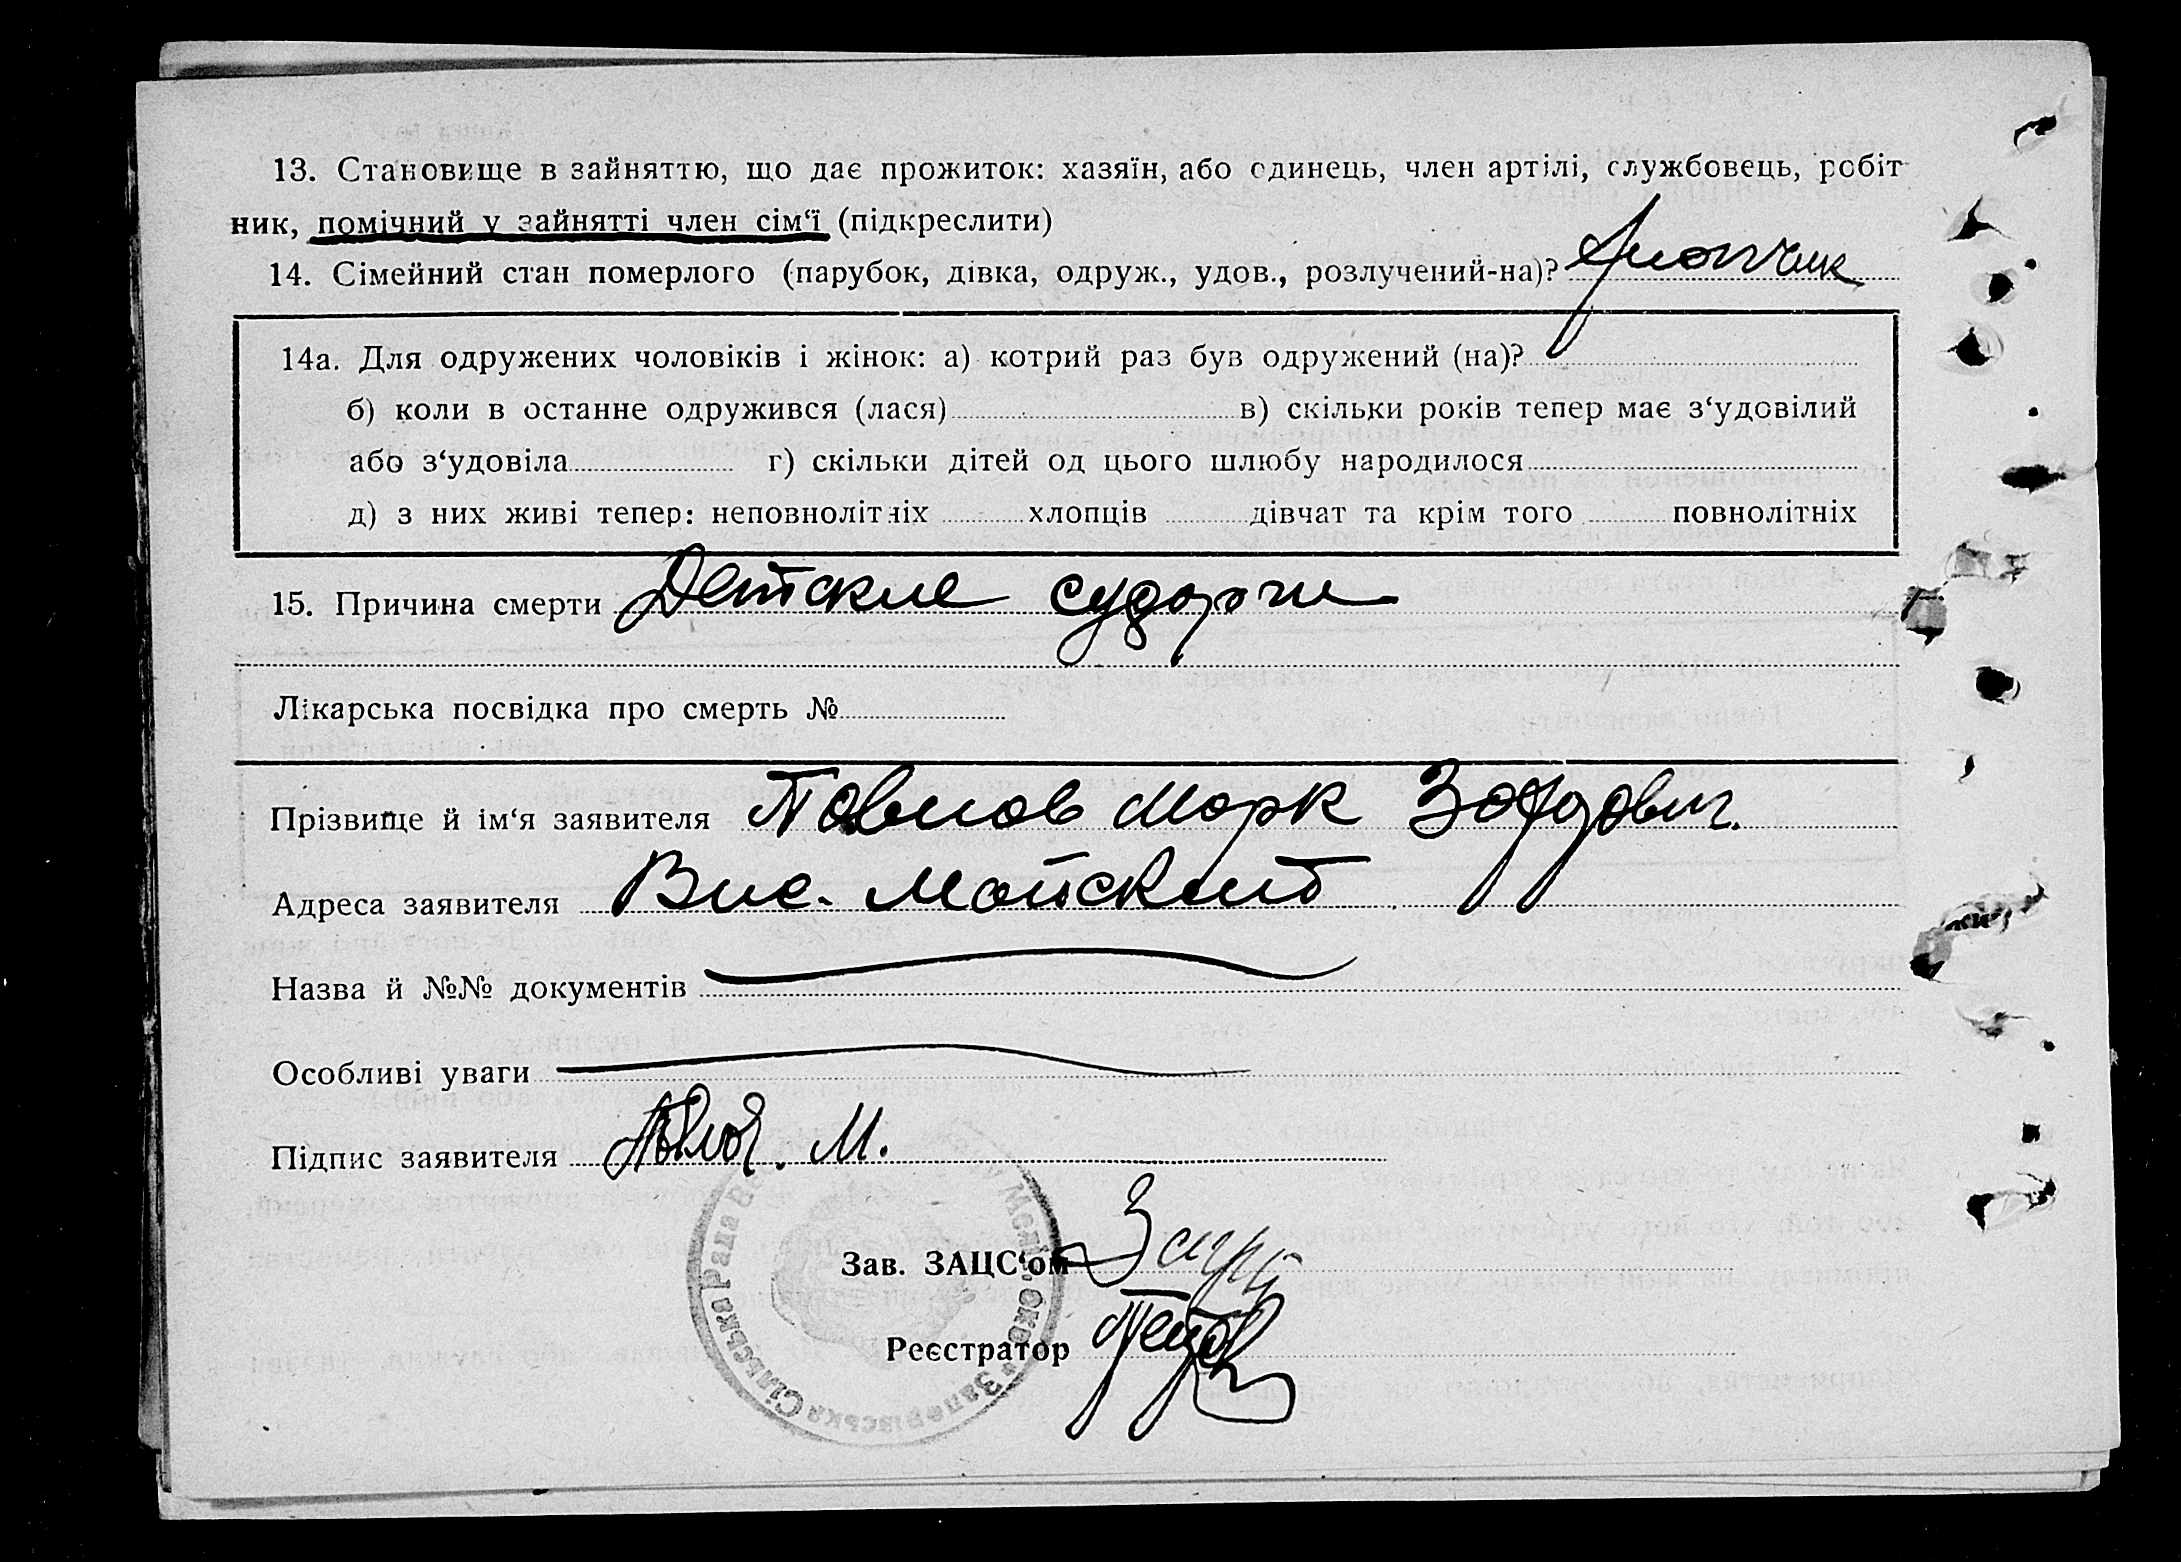 13. Становище в зайняттю, що дає прожиток: хазяїн, або одинець, член артілі, службовець, робіт
ник, помічний у зайнятті член сім‘ї (підкреслити)
14. Сімейний стан померлого (парубок, дівка, одруж., удов., розлучений-на)?
14а. Для одружених чоловіків і жінок: а) котрий раз був одружений (на)?
б) коли в останне одружився (лася) в) скільки років тепер має з‘удовілий
або з‘удовіла г) скільки дітей од цього шлюбу народилося
д) з них живі тепер: неповнолітніх хлопців дівчат та крім того повнолітніх
15. Причина смерти Детские судороги
Лікарська посвідка про смерть №
Прізвище й ім‘я заявителя Павлов Марк
Адреса заявителя Вис. Майский
Назва й №№ документів
Особливі уваги
Підпис заявителя М.
Зав. ЗАЦС‘ом
Реєстратор
Сільська Рада